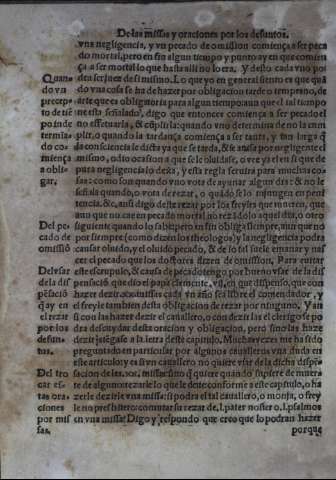 De las missas y oraciones por los defuntos.
vna negligencia, y vn pecado de omission comiença a ser peca
do mortal, pero en sin algun tiempo y punto ay en que comien
ça a ser mortal lo que hasta alli no lo era. Y desto cada vno po
dra ser juez de si mismo. Lo que yo en general siento es que quã
do vna cosa se ha de hazer por obligacion tarde o temprano, de
arte que es obligatoria para algun tiempo aun que el tal tiempo
no esta señalado, digo que entonces comiença a ser pecado el
no effectuarla, & cõplirla quãdo vno determina de no la cum
plir, o quando la tardança comiença a ser tanta, y tan larga q̃
la consciencia le dicta ya que se tarda, & se acusa por negligente el
mismo, o dio ocasion a que se le oluidase, o vee ya el en si que de
pura negligencia lo dexa, y esta regla seruira para muchas co-
sas: como son quando vno voto de ayunar algun dia: & no le
señalo quando, o vota de rezar, o quãdo se lo
tencia. &c. ansi digo deste rezar por los freyres que mueren, que
aun que no cae en pecado mortal no rezãdo lo aquel dia, o otro
siguiente quando lo sabe: pero en sin obliga siempre, aun que no
por siempre (como dizen los theologos) y la negligencia podra
causar oluido, y el oluido pecado, & de lo tal suele emanar y nas
cer el pecado que los doctores dizen de omission. Para euitar
este escrupulo, & causa de pecado tengo por bueno vsar de la dis
pensaciõ que dio el papa clemente, vii, en que dispenso, que con
hazer dezir .x. missas cada vn año sea libre el comendador, y
el freyle tambien desta obligacion de rezar por ninguno. Y an
si con las hazer dezir el cauallero, o con dezir las el clerigo se po
dra descuydar desta oracion y obligacion, pero sino las haze
dezir jusgase a la letra deste capitulo. Muchas vezes me ha sido
preguntado en particular por algunos caualleros vna duda en
este articulo: y es si vn cauallero no quiere vsar de la dicha dispẽ-
sacion de las .xx. missas: mas q̃ quiere quando supiere de muer
te de alguno rezarle lo que le deue conforme a este capitulo, o ha
zerle dezir le vna missa: si podra el tal cauallero, o monja, o frey
le no presbitero: commutar su rezar de .l. pater noster o .l. psalmos
en vna missa? Digo y respondo que creo que lo podran hazer
porque
Quan
do vn
precep-
to de tiẽ
po inde
termia-
do co-
miença
a obli-
gar.
Del pe
cado de
omissiõ
Del vsar
dela dis
pẽsaciõ
q̃ ay en
el rezar
por los
defun-
tos.
Del tro
car es-
tas ora
ciones
por mis
sas.